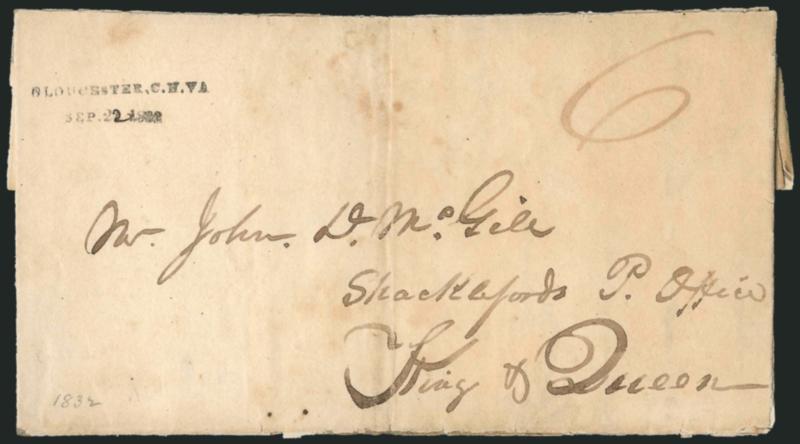 GLOUCESTER, C.H. VA
SEP. 22 1832
6
Mr. John. D. McGill
Shacklefords P. Office
King & Queen
1832